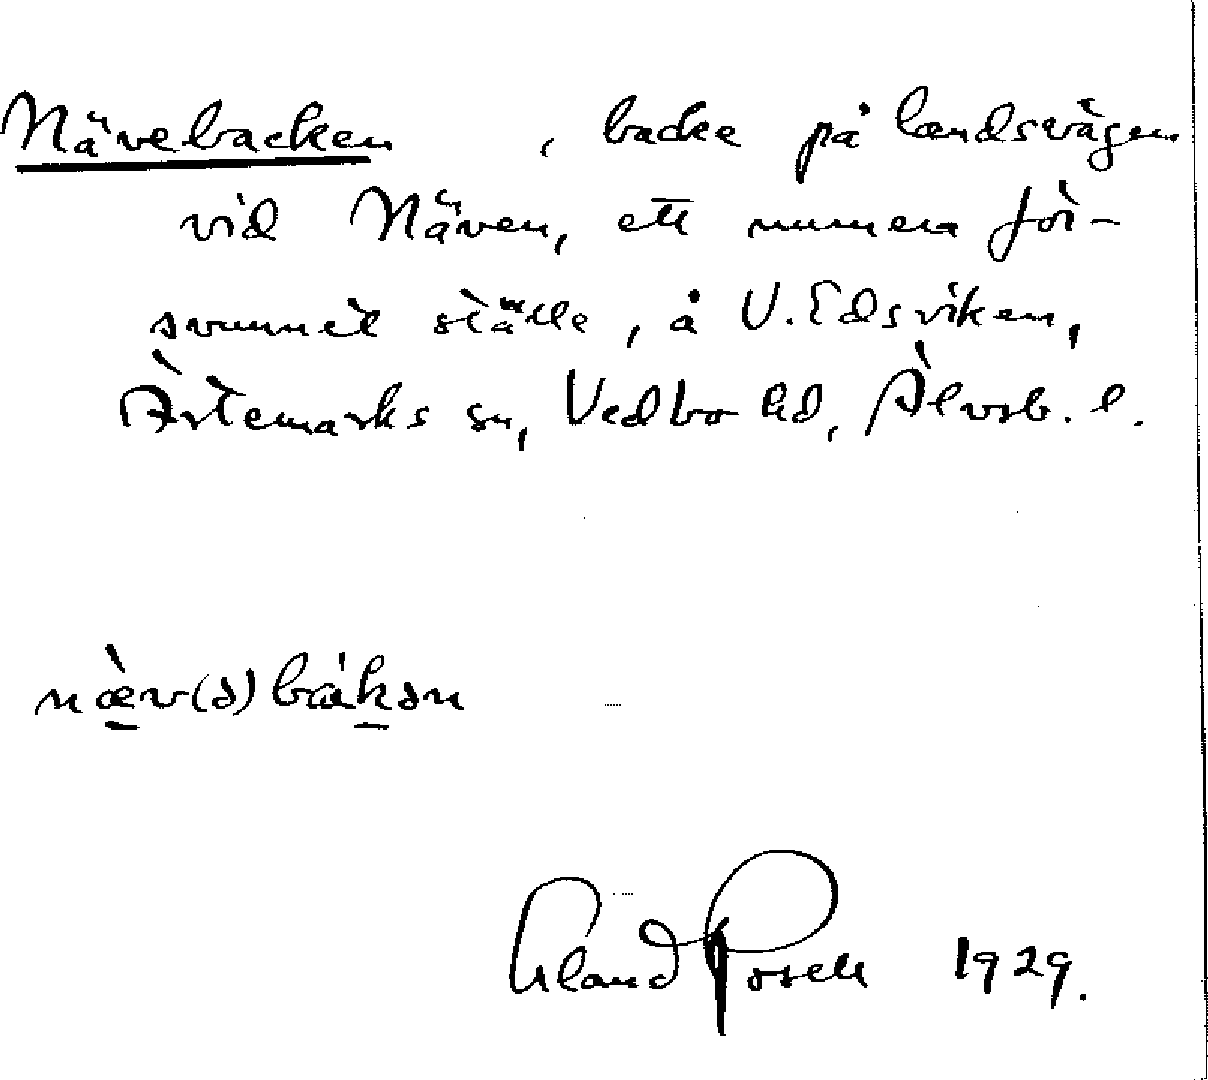 Nävebacken , backe på landsvägen
vid Näven, ett numera för-
svunnet ställe, å V. Edsviken,
Ärtemarks sn, Vedbo hd, Älvsb. l.
næ̀v(ə)bàkən
Posse 1929.